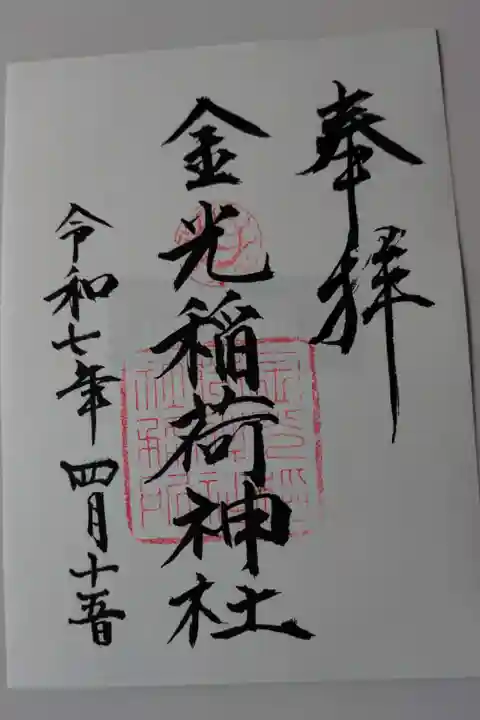 奉拝
金光稲荷神社
令和七年四月十五日